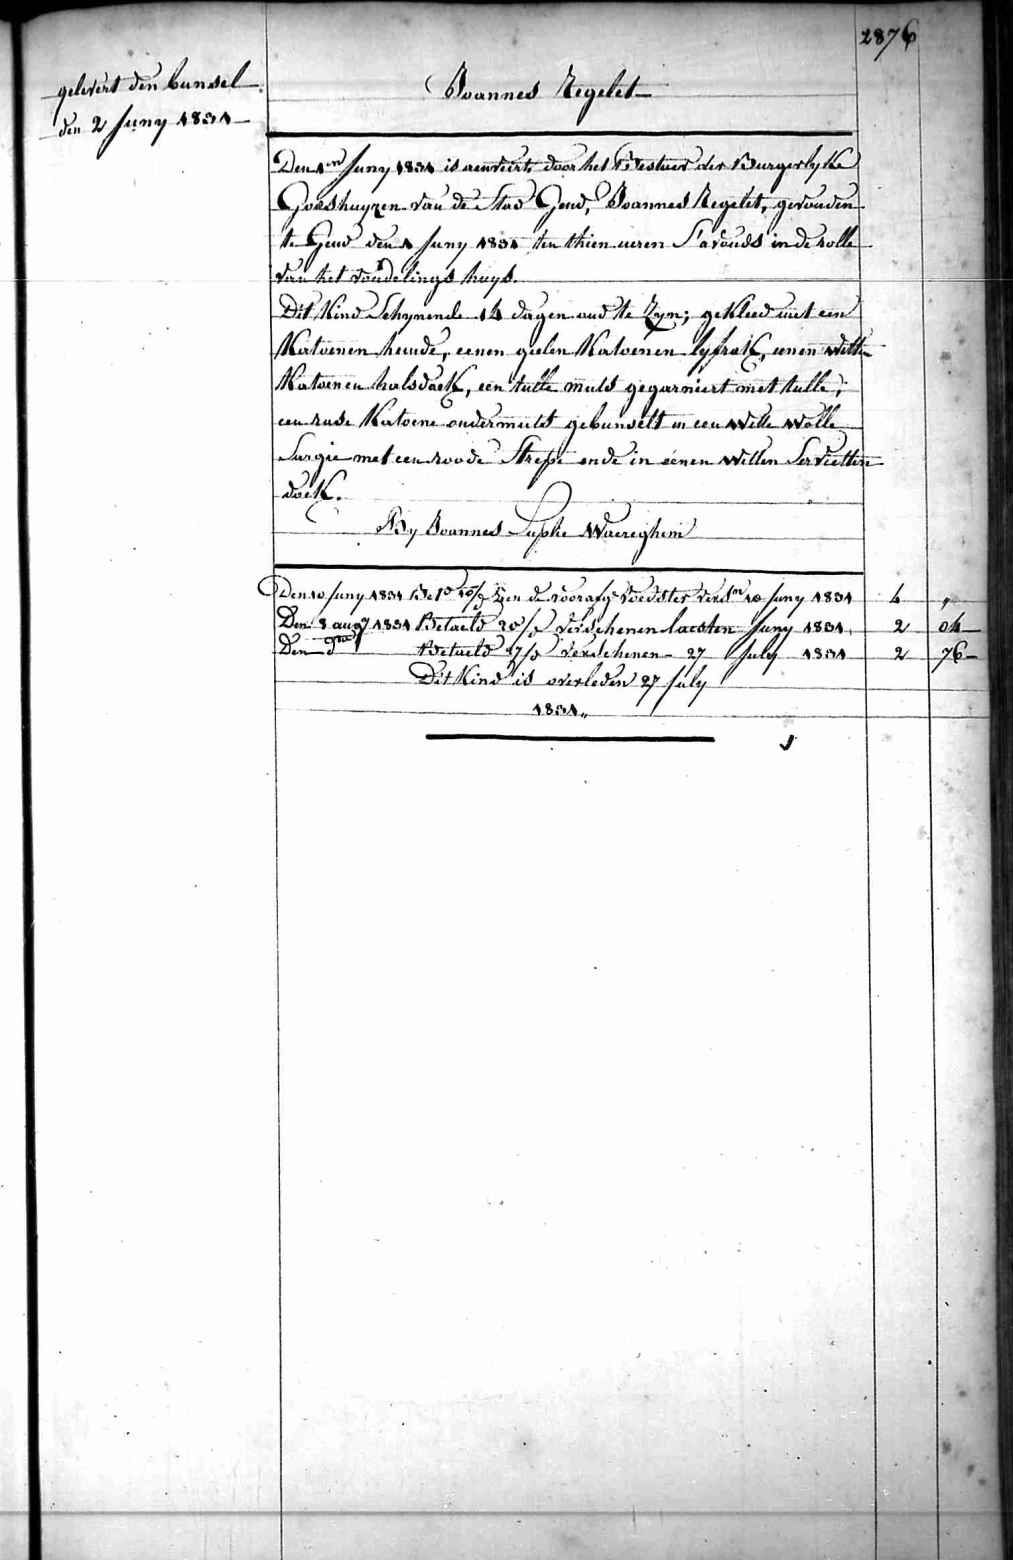 2876
gelevert den bunsel
den 2 Juny 1831
Joannes Regelet
Den 1en Juny 1831 is aenveirt door het Bestuer der Burgerlyke
Godshuyzen van de Stad Gend, Joannes Regelet, gevonden
te Gend den 1 Juny 1831 ten thien ueren S'avonds in de rolle
van het vondelings huys.
Dit Kind Schynende 14 dagen oud te Zyn; gekleed met een
Katoenen hemde, eenen geelen Katoenen lyfrok, eenen witten
Katoenen halsdoek, een tulle muts gegarniert met tulle;
een rude Katoene ondermuts gebunselt in een Witte Wolle
Sargie met een roode Strepe ende in eenen witten Servietten
doek.
By Joannes Waereghem
Den 10 Juny 1831 aen de voedster 10 Juny 1831 4 "
Den 8 aug 1831 Betaeld 20/d verschenen laesten Juny 1831 2 04
Den do Betaeld 27/d verschenen 27 July 1831 2 76
Dit Kind is overleden 27 July
1831